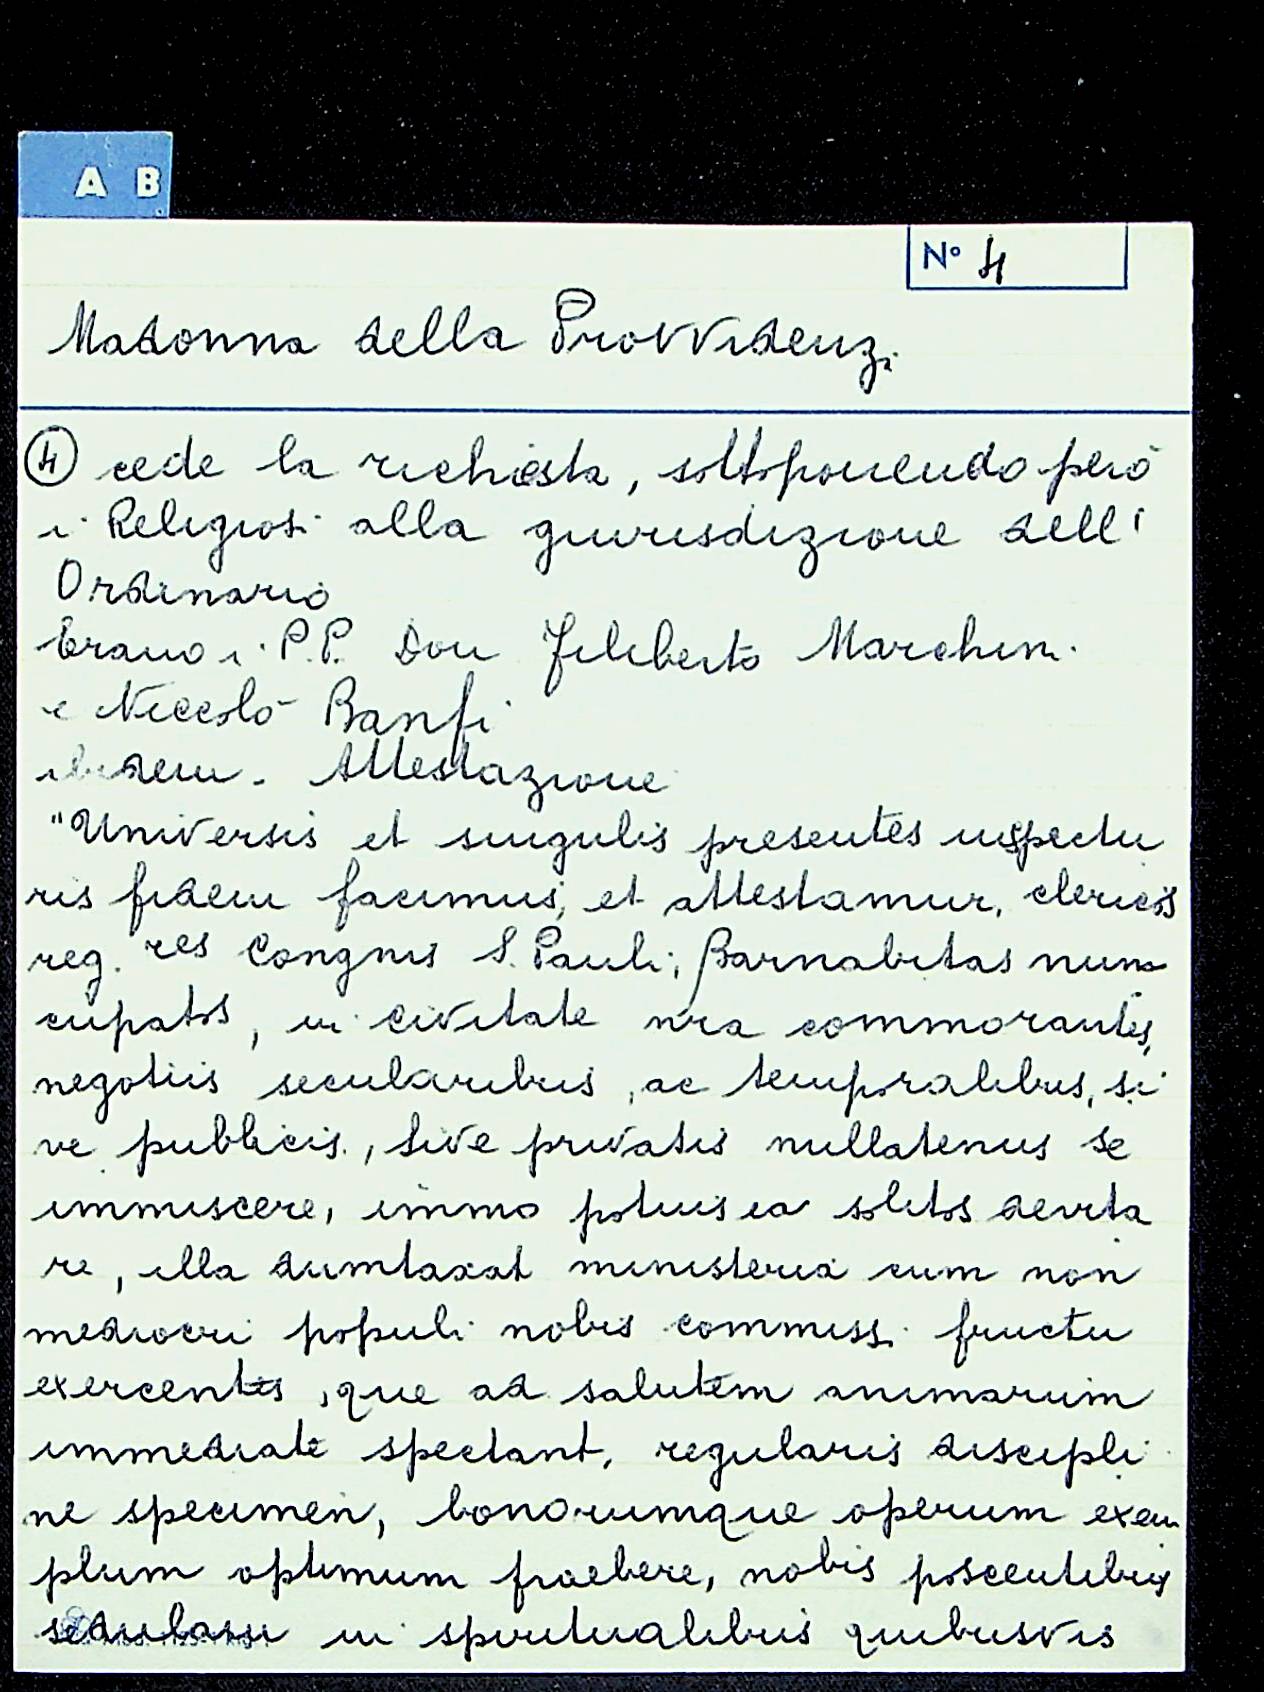 A B
N° 4
Madonna della Provvidenz.
④ cede la richiesta, sottoponendo però
i Religiosi alla giurisdizione dell'
Ordinario
Erano i P.P. Don Filiberto Marchini
e Niccolò Banfi
ibidem. Attestazione
"Universis et singulis presentes inspectu
ris fidem facimus, et attestamur, clericos
reg.res Congnis S. Pauli, Barnabitas nun
cupatos, in civitate nra commorantes,
negotiis secularibus, ac temporalibus, si
ve publicis, sive privatis nullatenus se
immiscere, immo potius ea solitos devita
re, illa dumtaxat ministeria cum non
mediocri populi nobis commissi fructu
exercentes, que ad salutem animarum
immediate spectant, regularis discipli
ne specimen, bonorumque operum exem
plum optimum praebere, nobis poscentibus
sedulam in spiritualibus quibusvis